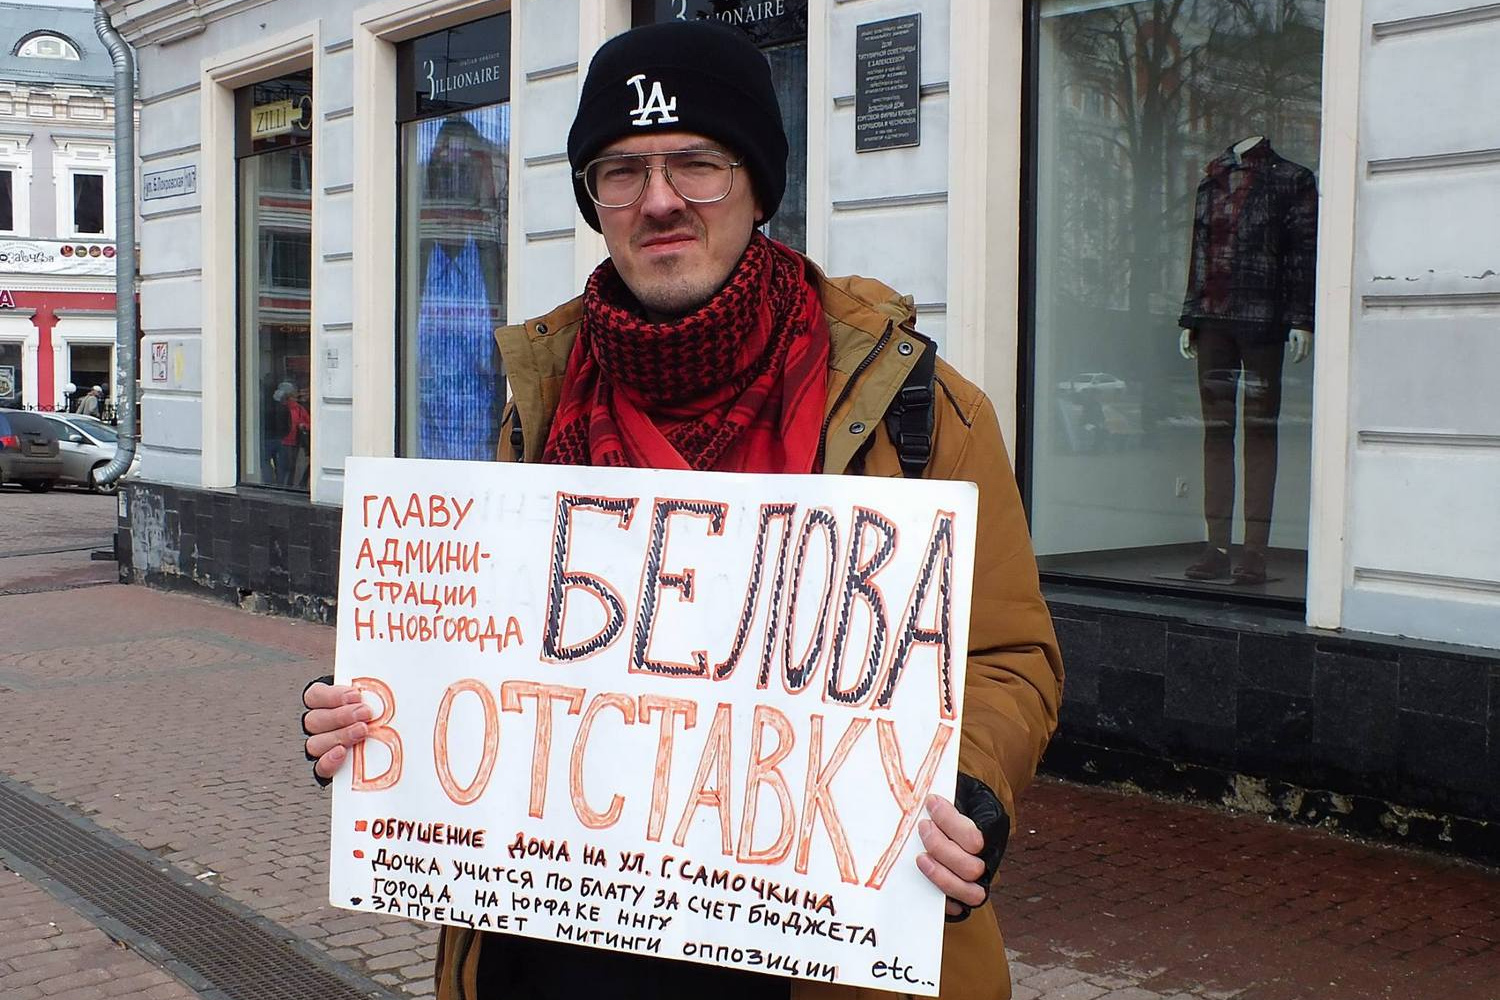 BILLIONAIRE
BILLIONAIRE
ZILLI
ул. Б. Покровская 10/7
LA
ГЛАВУ
АДМИНИ-
СТРАЦИИ
Н.НОВГОРОДА
БЕЛОВА
В ОТСТАВКУ
ОБРУШЕНИЕ ДОМА НА УЛ. Г. САМОЧКИНА
ДОЧКА УЧИТСЯ ПО БЛАТУ ЗА СЧЕТ БЮДЖЕТА
ГОРОДА НА ЮРФАКЕ ННГУ
ЗАПРЕЩАЕТ МИТИНГИ ОППОЗИЦИИ etc..